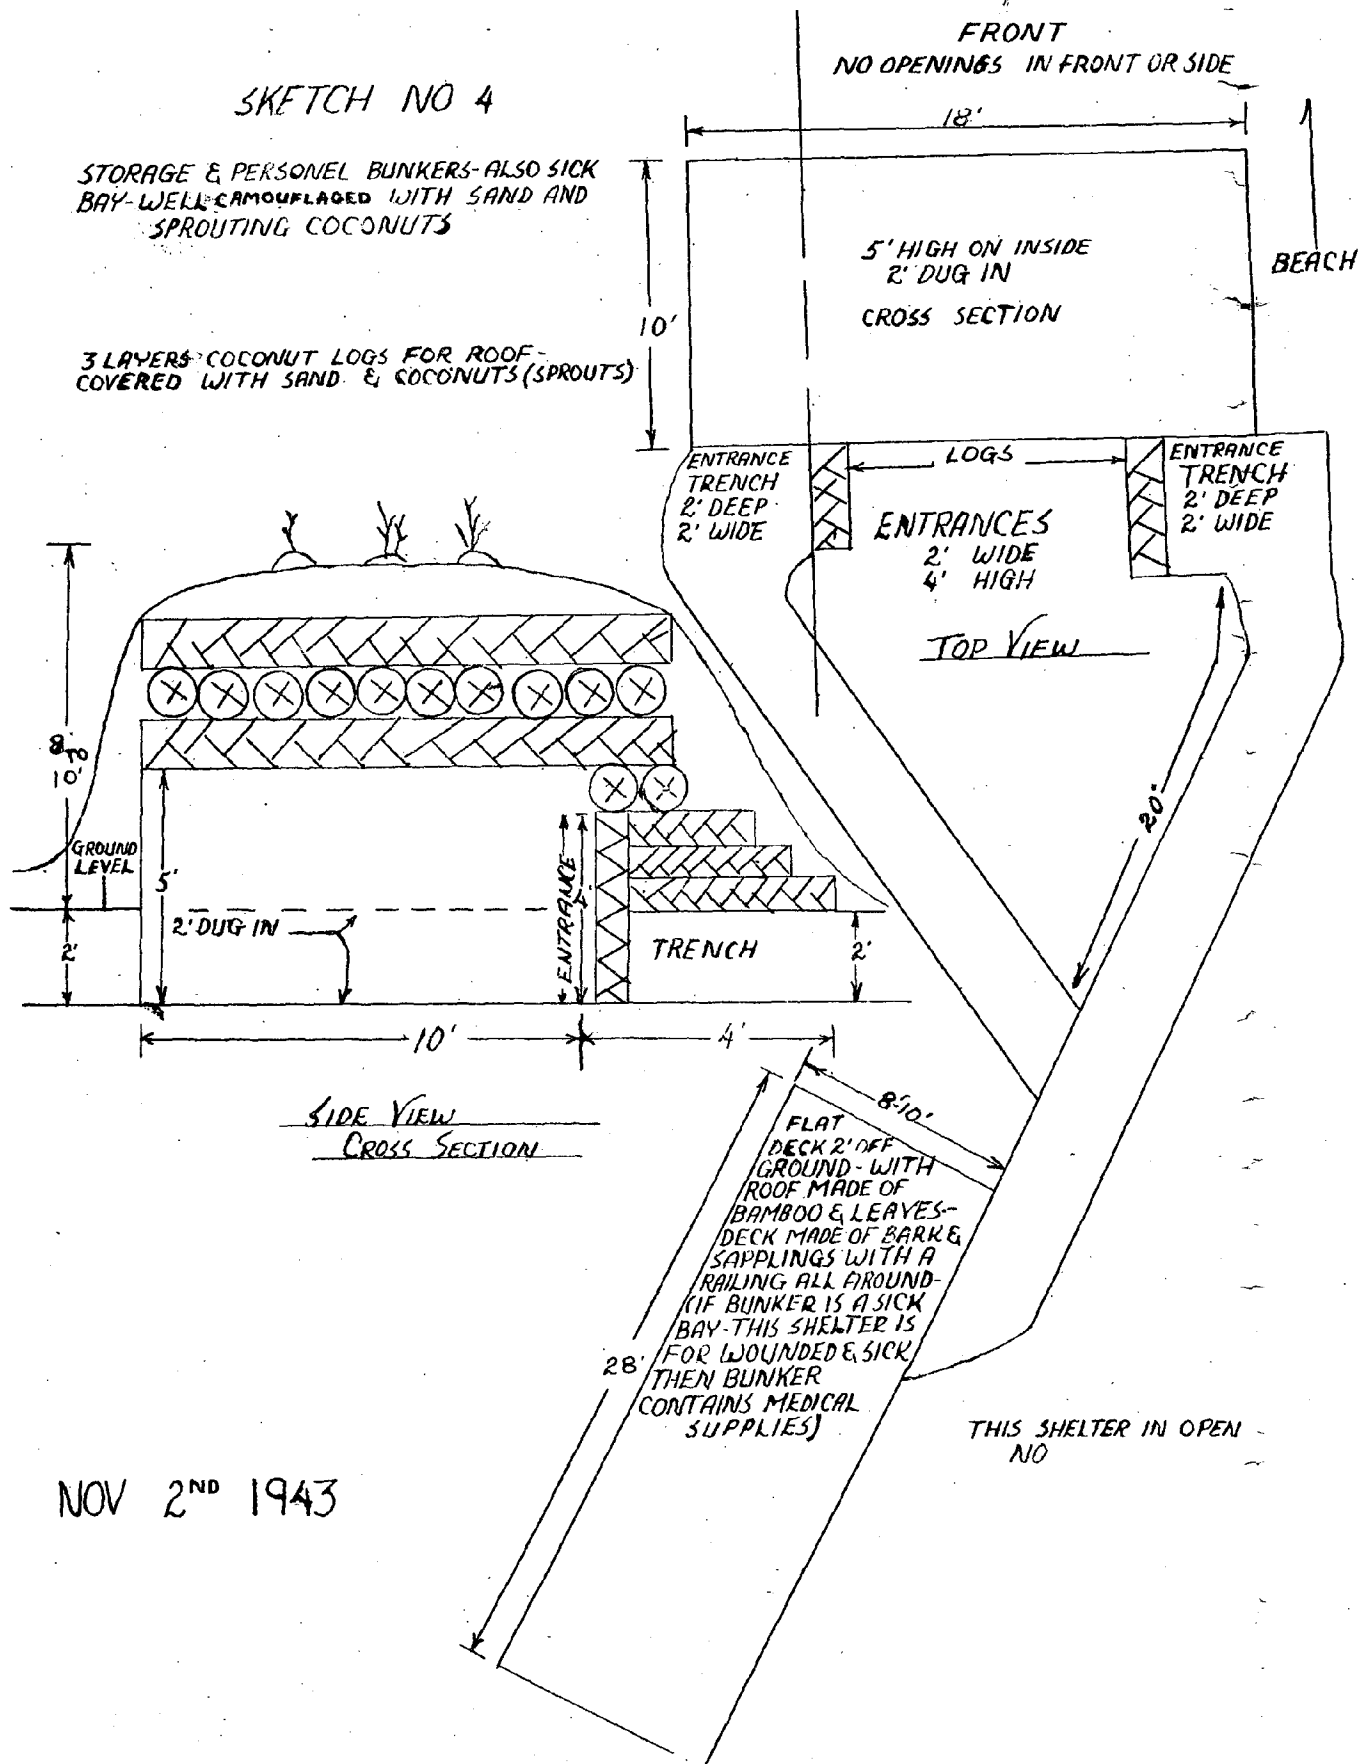 SKETCH NO 4
STORAGE & PERSONEL BUNKERS-ALSO SICK
BAY-WELL CAMOUFLAGED WITH SAND AND
SPROUTING COCONUTS
3 LAYERS COCONUT LOGS FOR ROOF-
COVERED WITH SAND & COCONUTS (SPROUTS)
FRONT
NO OPENINGS IN FRONT OR SIDE
18'
10'
5' HIGH ON INSIDE
2' DUG IN
CROSS SECTION
BEACH
ENTRANCE
TRENCH
2' DEEP
2' WIDE
LOGS
ENTRANCES
2' WIDE
4' HIGH
TOP VIEW
ENTRANCE
TRENCH
2' DEEP
2' WIDE
20'
8' TO
10'
GROUND
LEVEL
5'
2'
2' DUG IN
ENTRANCE
4'
TRENCH
2'
10'
4'
SIDE VIEW
CROSS SECTION
8-10'
28'
FLAT
DECK 2' OFF
GROUND-WITH
ROOF MADE OF
BAMBOO & LEAVES-
DECK MADE OF BARK &
SAPPLINGS WITH A
RAILING ALL AROUND-
(IF BUNKER IS A SICK
BAY-THIS SHELTER IS
FOR WOUNDED & SICK
THEN BUNKER
CONTAINS MEDICAL
SUPPLIES)
THIS SHELTER IN OPEN
NO
NOV 2ND 1943